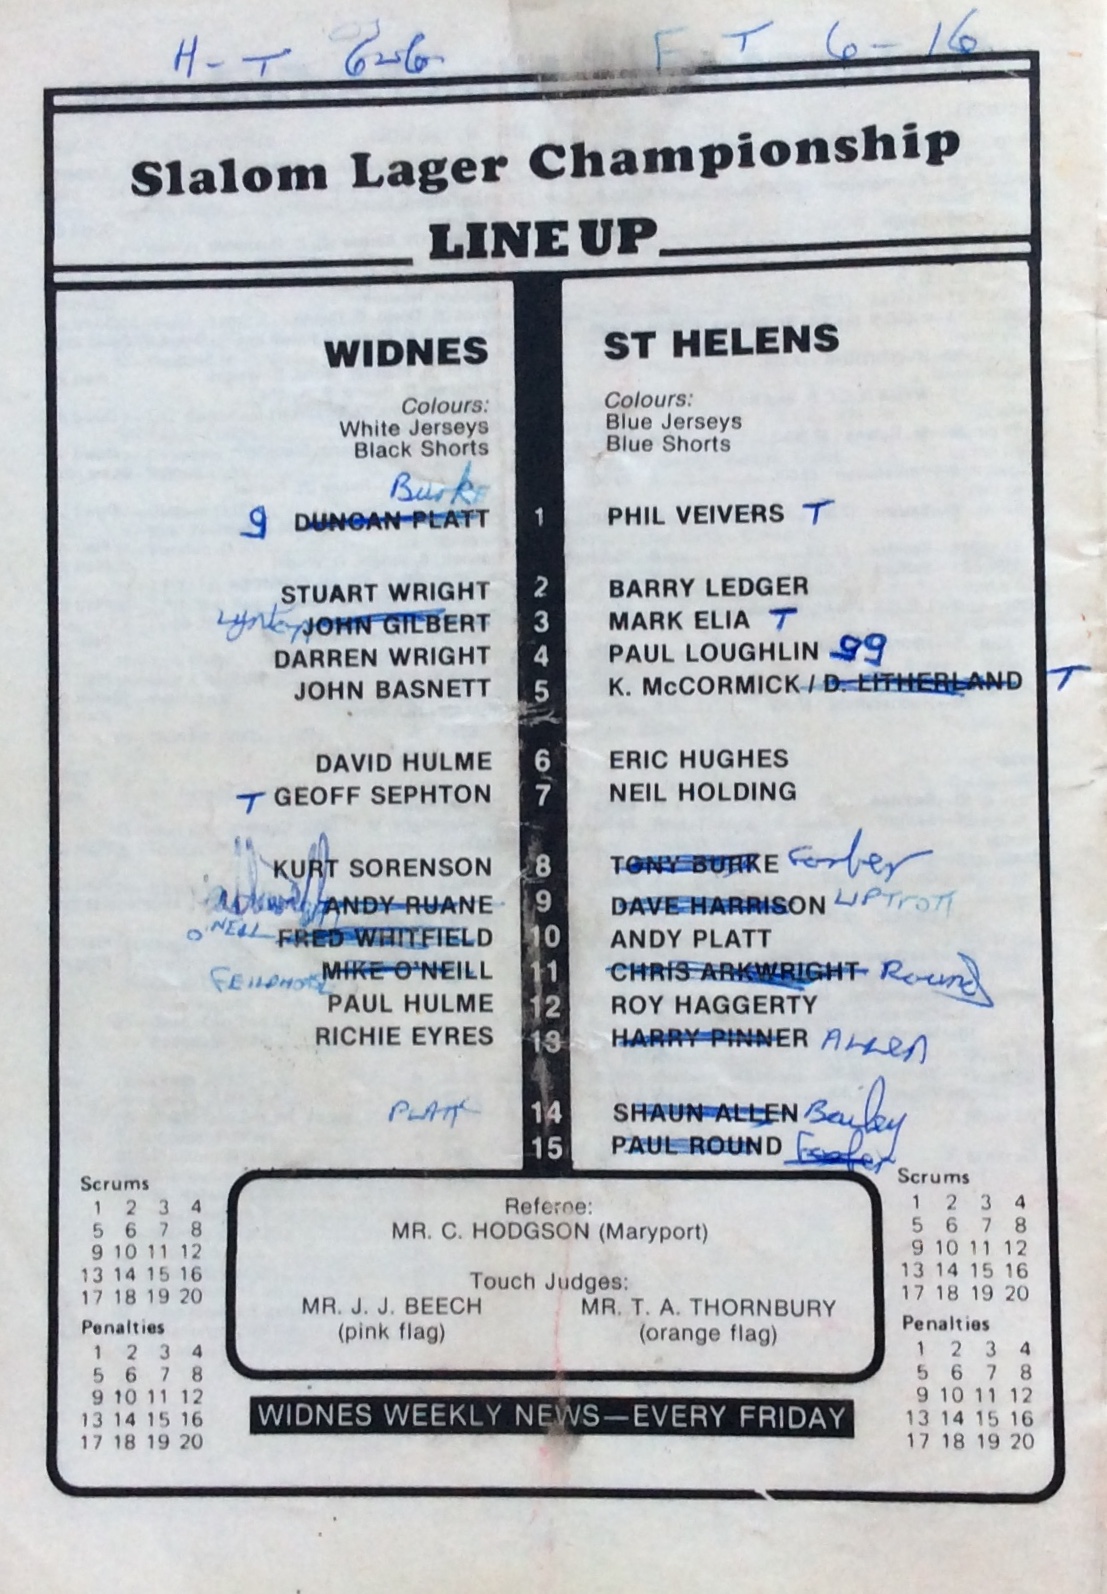 H-T 6-6 F T 6-16
Slalom Lager Championship
LINE UP
WIDNES ST HELENS
Colours: Colours:
White Jerseys Blue Jerseys
Black Shorts Blue Shorts
Burke
g DUNCAN PLATT 1 PHIL VEIVERS T
STUART WRIGHT 2 BARRY LEDGER
JOHN GILBERT 3 MARK ELIA T
DARREN WRIGHT 4 PAUL LOUGHLIN gg
JOHN BASNETT 5 K. McCORMICK / D. LITHERLAND T
DAVID HULME 6 ERIC HUGHES
T GEOFF SEPHTON 7 NEIL HOLDING
KURT SORENSON 8 TONY BURKE Forber
ANDY RUANE 9 DAVE HARRISON LIPTROTT
O'NEILL FRED WHITFIELD 10 ANDY PLATT
MIKE O'NEILL 11 CHRIS ARKWRIGHT Round
PAUL HULME 12 ROY HAGGERTY
RICHIE EYRES 13 HARRY PINNER ALLEN
PLATT 14 SHAUN ALLEN Bailey
15 PAUL ROUND Forber
Scrums Scrums
1 2 3 4 1 2 3 4
5 6 7 8 5 6 7 8
9 10 11 12 9 10 11 12
13 14 15 16 13 14 15 16
17 18 19 20 17 18 19 20
Referee:
MR. C. HODGSON (Maryport)
Touch Judges:
MR. J. J. BEECH MR. T. A. THORNBURY
(pink flag) (orange flag)
Penalties Penalties
1 2 3 4 1 2 3 4
5 6 7 8 5 6 7 8
9 10 11 12 9 10 11 12
13 14 15 16 13 14 15 16
17 18 19 20 17 18 19 20
WIDNES WEEKLY NEWS—EVERY FRIDAY